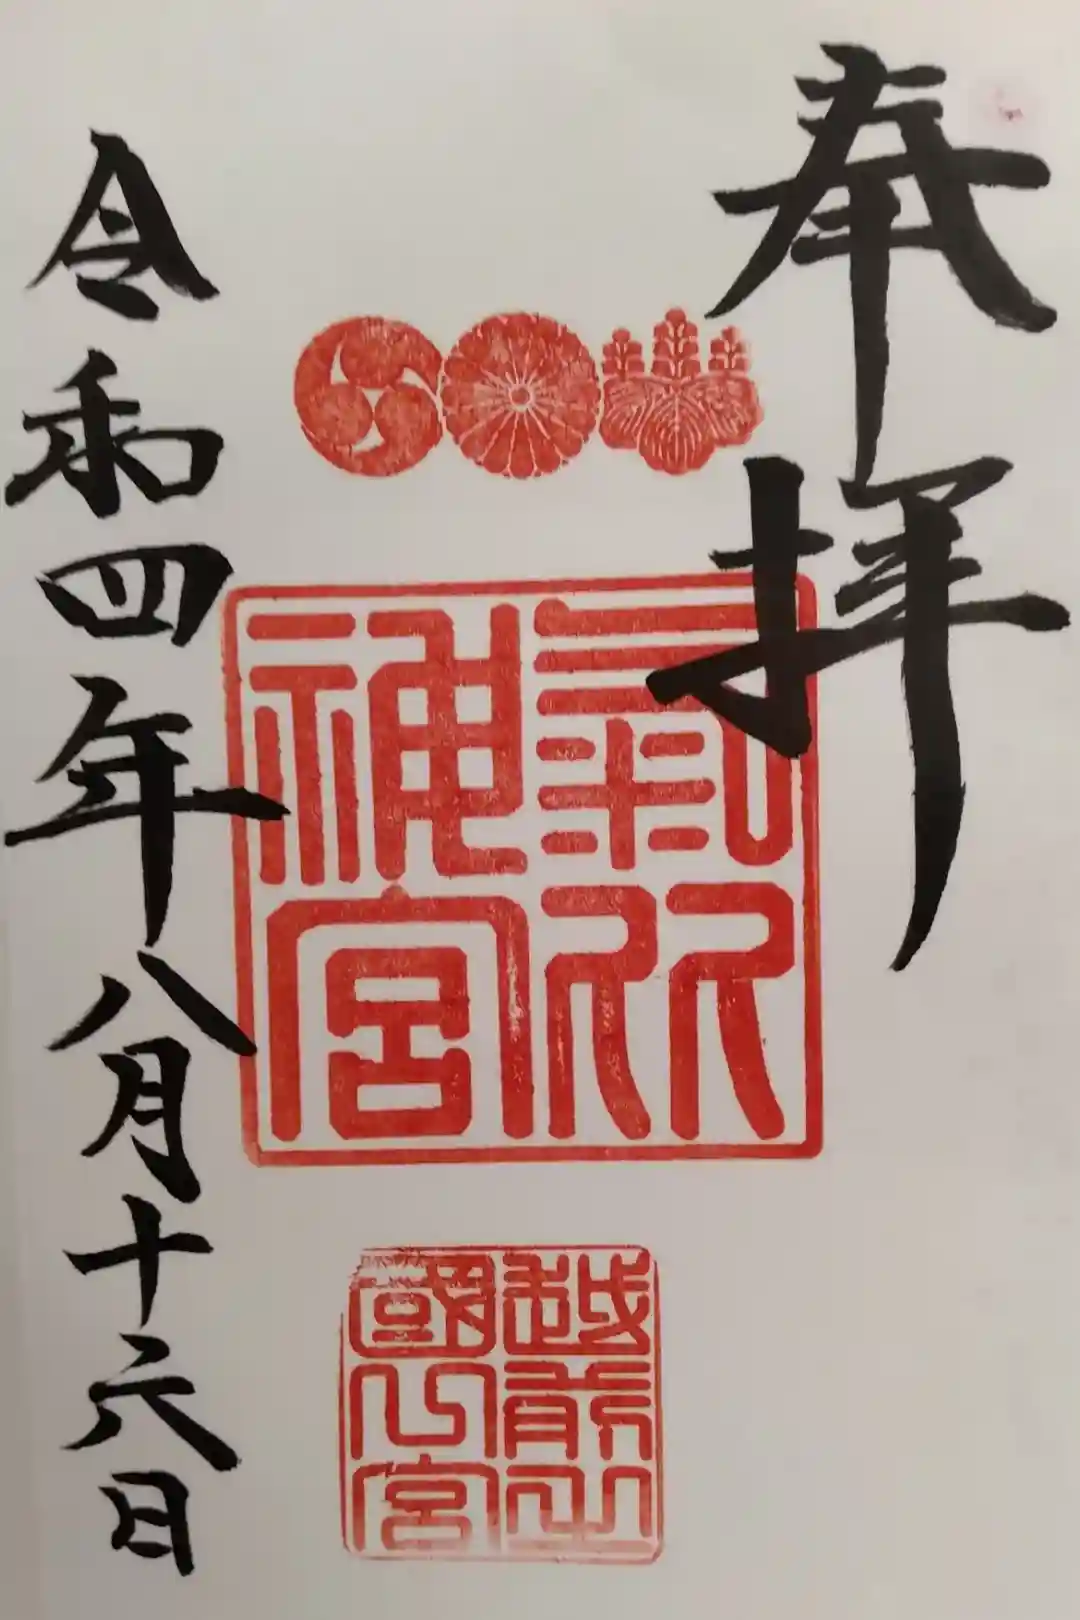 奉拝
氣比
神宮
越前之
國宮
令和四年八月十六日